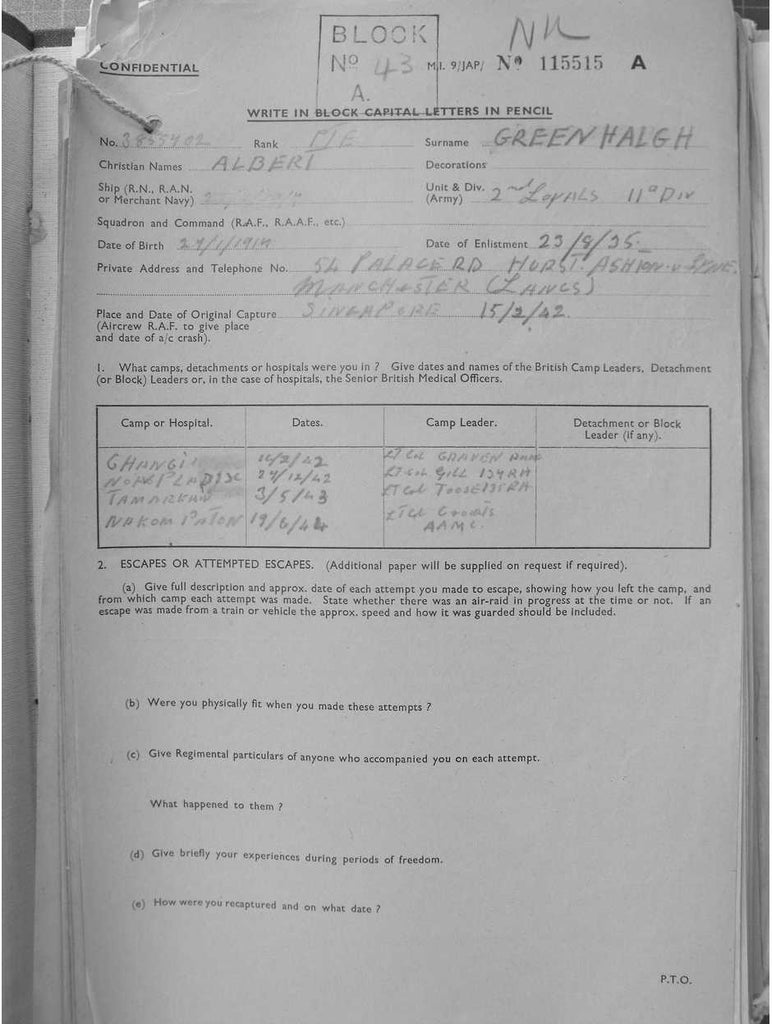 BLOCK
Nº 43
A.
NK
CONFIDENTIAL
M.I. 9/JAP/ Nº 115515 A
WRITE IN BLOCK CAPITAL LETTERS IN PENCIL
No. Rank PTE Surname GREENHALGH
Christian Names ALBERT Decorations
Ship (R.N., R.A.N. or Merchant Navy) Unit & Div. (Army) 2nd Loyals 11th Div
Squadron and Command (R.A.F., R.A.A.F., etc.)
Date of Birth Date of Enlistment 23/8/35
Private Address and Telephone No. 54 PALACE RD HURST. ASHTON-U-LYNE.
MANCHESTER (LANCS)
Place and Date of Original Capture SINGAPORE 15/2/42.
(Aircrew R.A.F. to give place
and date of a/c crash).
1. What camps, detachments or hospitals were you in ? Give dates and names of the British Camp Leaders, Detachment
(or Block) Leaders or, in the case of hospitals, the Senior British Medical Officers.
Camp or Hospital. Dates. Camp Leader. Detachment or Block Leader (if any).
CHANGI /2/42 LT Col
27/12/42 LT Col GILL 134 RA
TAMARKAN 3/5/43 LT Col TOOSE 135 RA
NAKOM PATON 19/6/44 LT Col Coats
AAMC.
2. ESCAPES OR ATTEMPTED ESCAPES. (Additional paper will be supplied on request if required).
(a) Give full description and approx. date of each attempt you made to escape, showing how you left the camp, and
from which camp each attempt was made. State whether there was an air-raid in progress at the time or not. If an
escape was made from a train or vehicle the approx. speed and how it was guarded should be included.
(b) Were you physically fit when you made these attempts ?
(c) Give Regimental particulars of anyone who accompanied you on each attempt.
What happened to them ?
(d) Give briefly your experiences during periods of freedom.
(e) How were you recaptured and on what date ?
P.T.O.